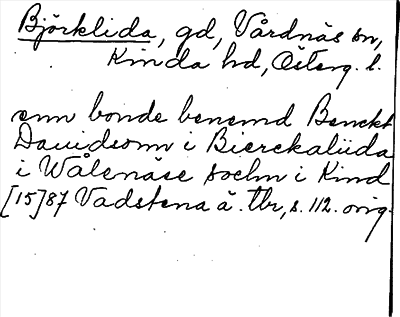 Björklida, gd, Vårdnäs sn,
Kinda hd, Österg. l.
enn bonde benemd Benckt
Dauidsonn i Bierckaliida
i Wålenäse sochn i Kind
[15]87 Vadstena ä. tbr, s. 112. orig.